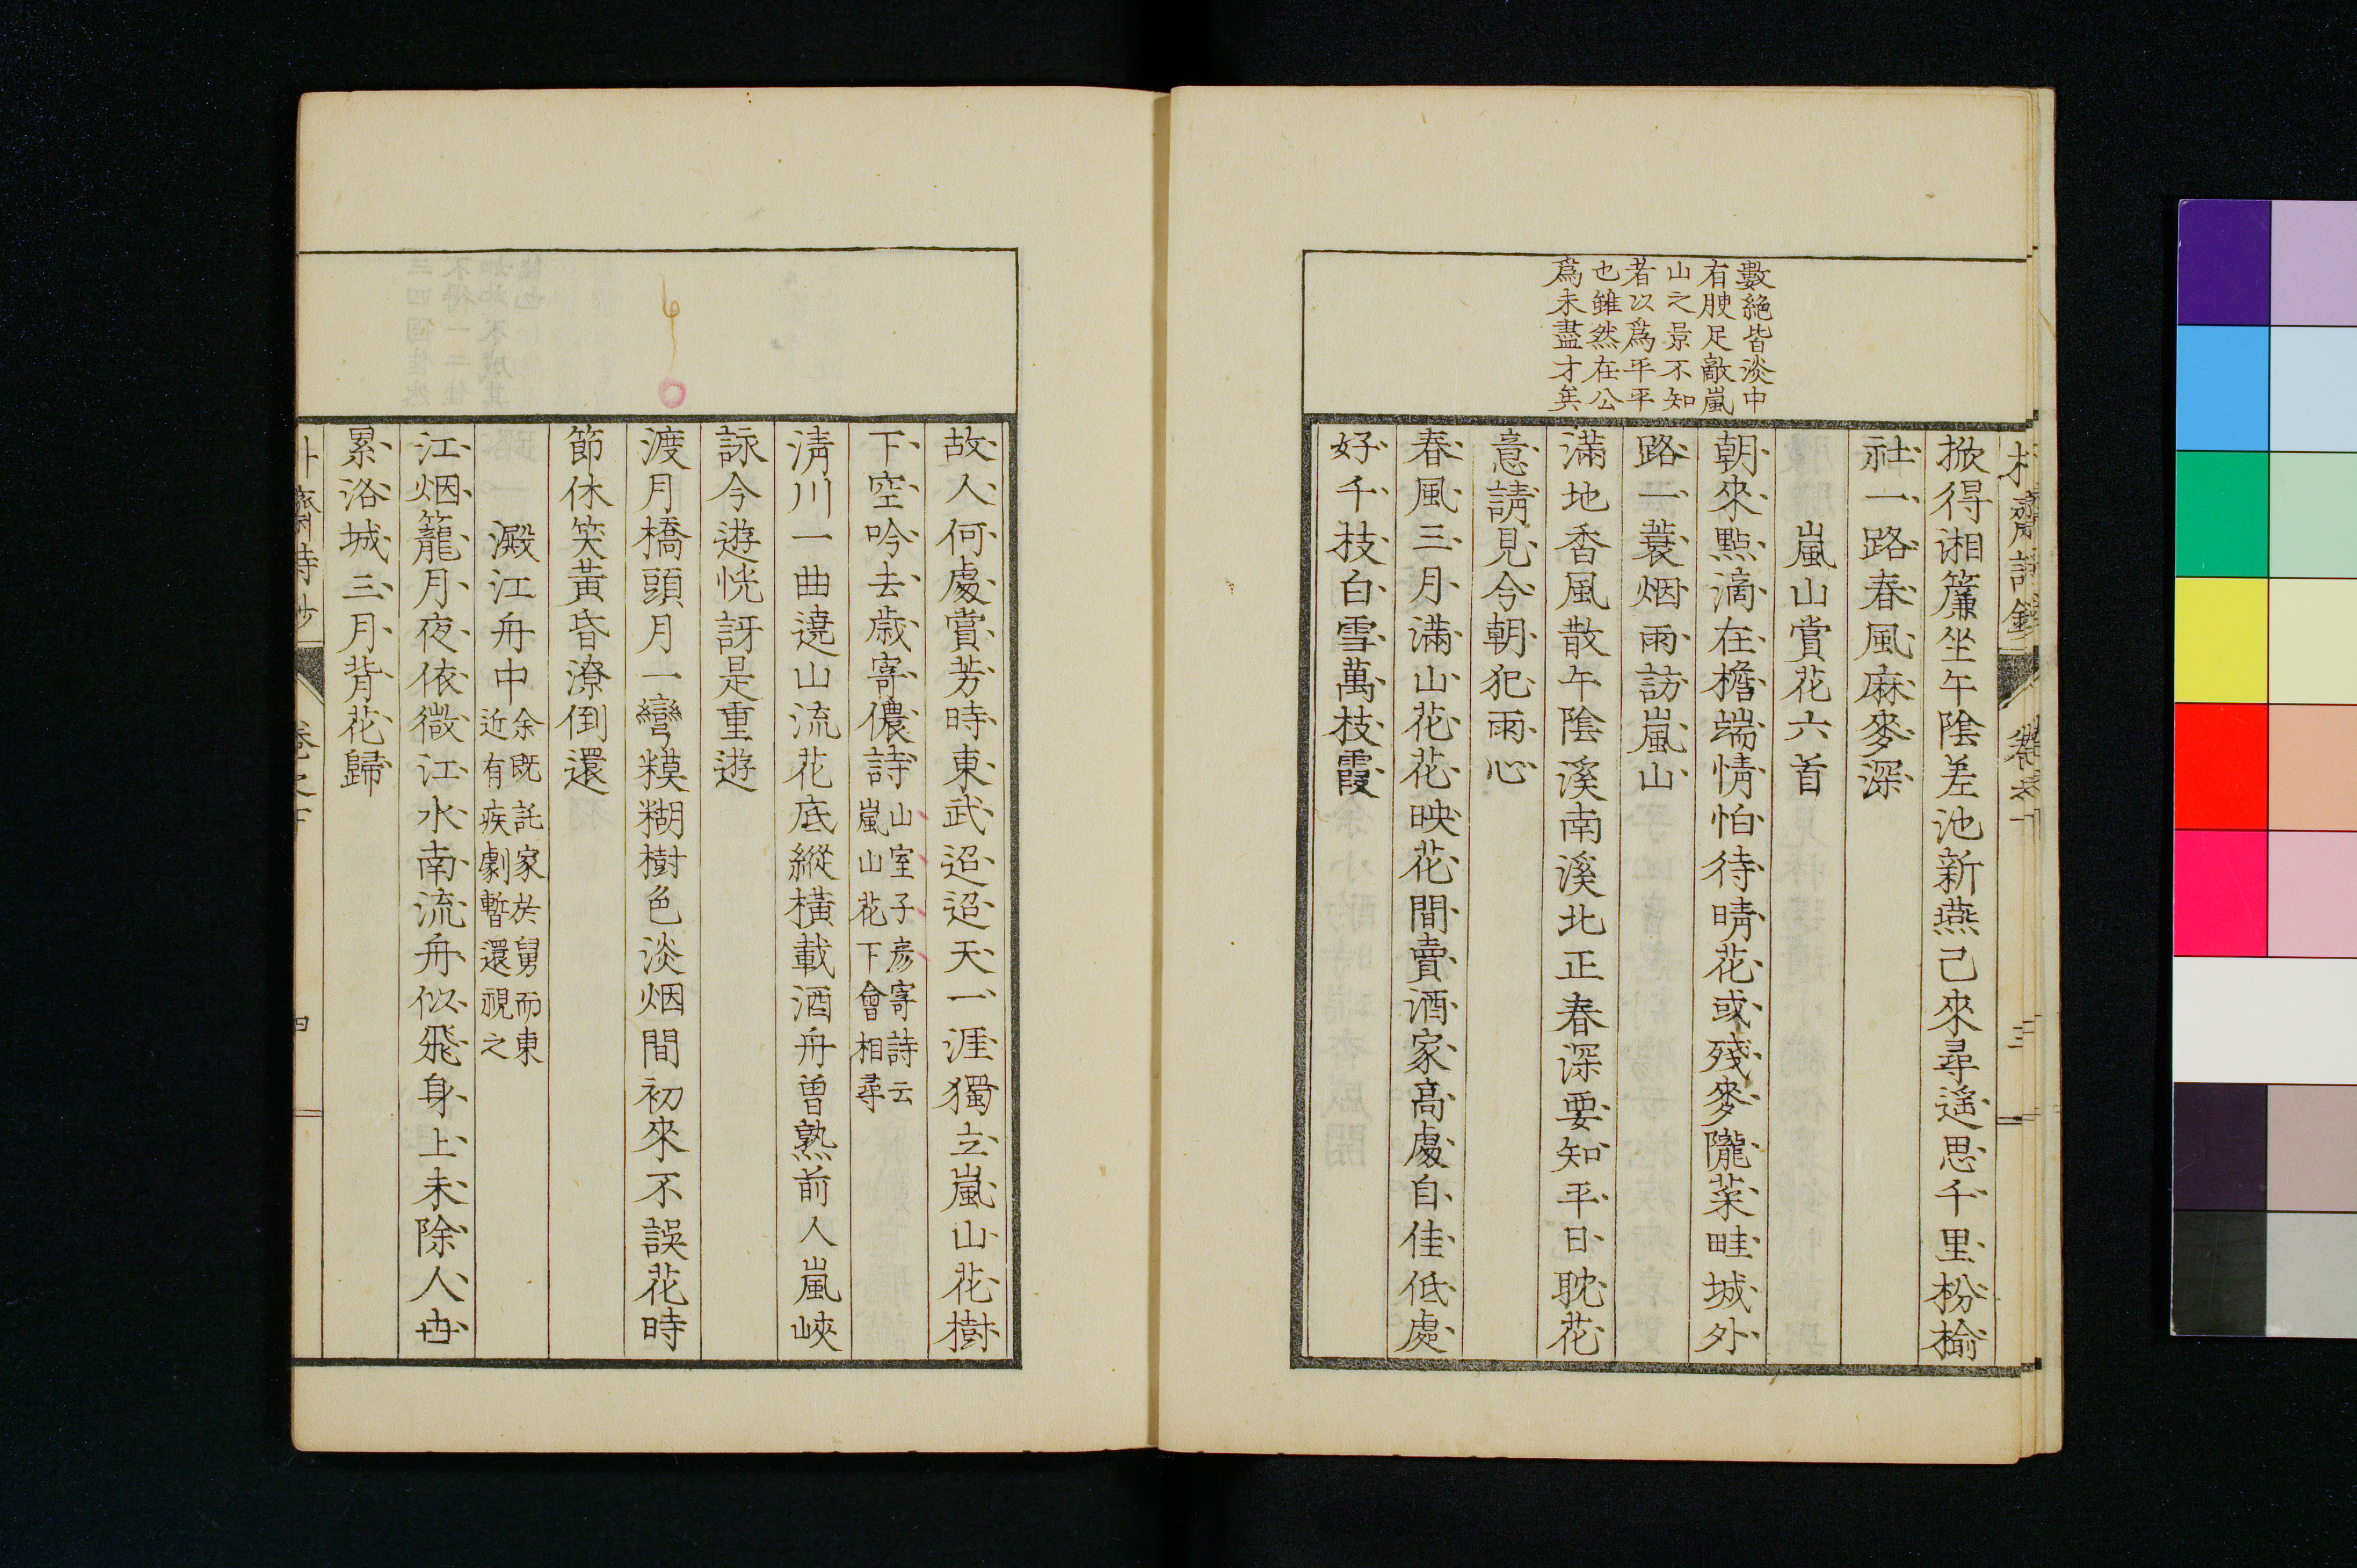 數絶皆淡中
有腴足敵嵐
山之景不知
者以爲平平
也雖然在公
爲未盡才矣
掀得湘簾坐午陰差池新燕己來尋遙思千里枌楡
社一路春風麻麥深
嵐山賞花六首
朝來點滴在檐端情怕待晴花或殘麥隴菜畦城外
路一蓑烟雨訪嵐山
滿地香風散午陰溪南溪北正春深要知平日耽花
意請見今朝犯雨心
春風三月滿山花花映花間賣酒家高處自佳低處
好千枝白雪萬枝霞
故人何處賞芳時東武迢迢天一涯獨立嵐山花樹
下空吟去歳寄儂詩
山室子彦寄詩云
嵐山花下會相尋
淸川一曲遶山流花底縱橫載酒舟曽熟前人嵐峽
詠今遊恍訝是重遊
渡月橋頭月一彎糢糊樹色淡烟間初來不誤花時
節休笑黃昏潦倒還
澱江舟中
余既託家於舅而東
近有疾劇暫還視之
江烟籠月夜依微江水南流舟似飛身上未除人世
累洛城三月背花歸
四